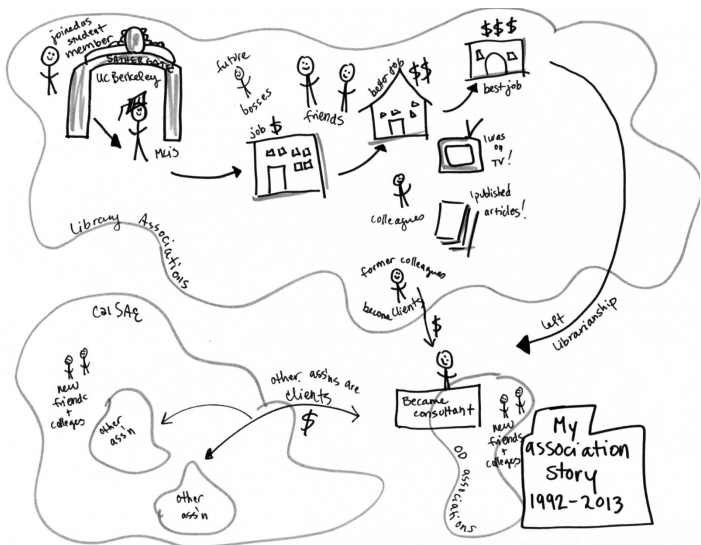 joined as
student
member
SATHER GATE
UC Berkeley
MLIS
future
bosses
friends
job $
better job
$$
$$$
best job
I was
on
TV!
colleagues
I published
articles!
Library Associations
former colleagues
become clients
$
left
librarianship
CalSAE
new
friends
+
colleges
other
ass'n
other
ass'n
other ass'ns are
clients
$
Became
consultant
new
friends
+
colleges
OD associations
My
association
story
1992-2013